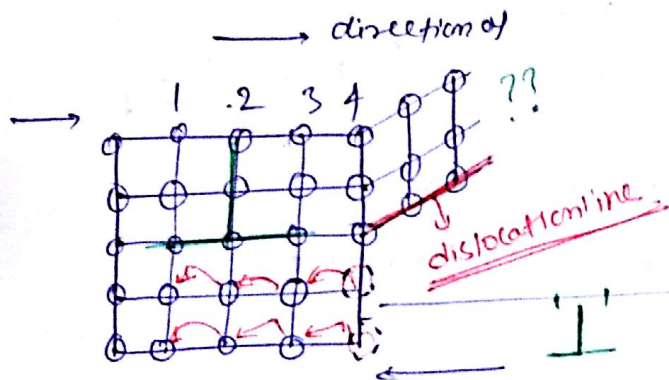 direction of
1 2 3 4
??
dislocation line